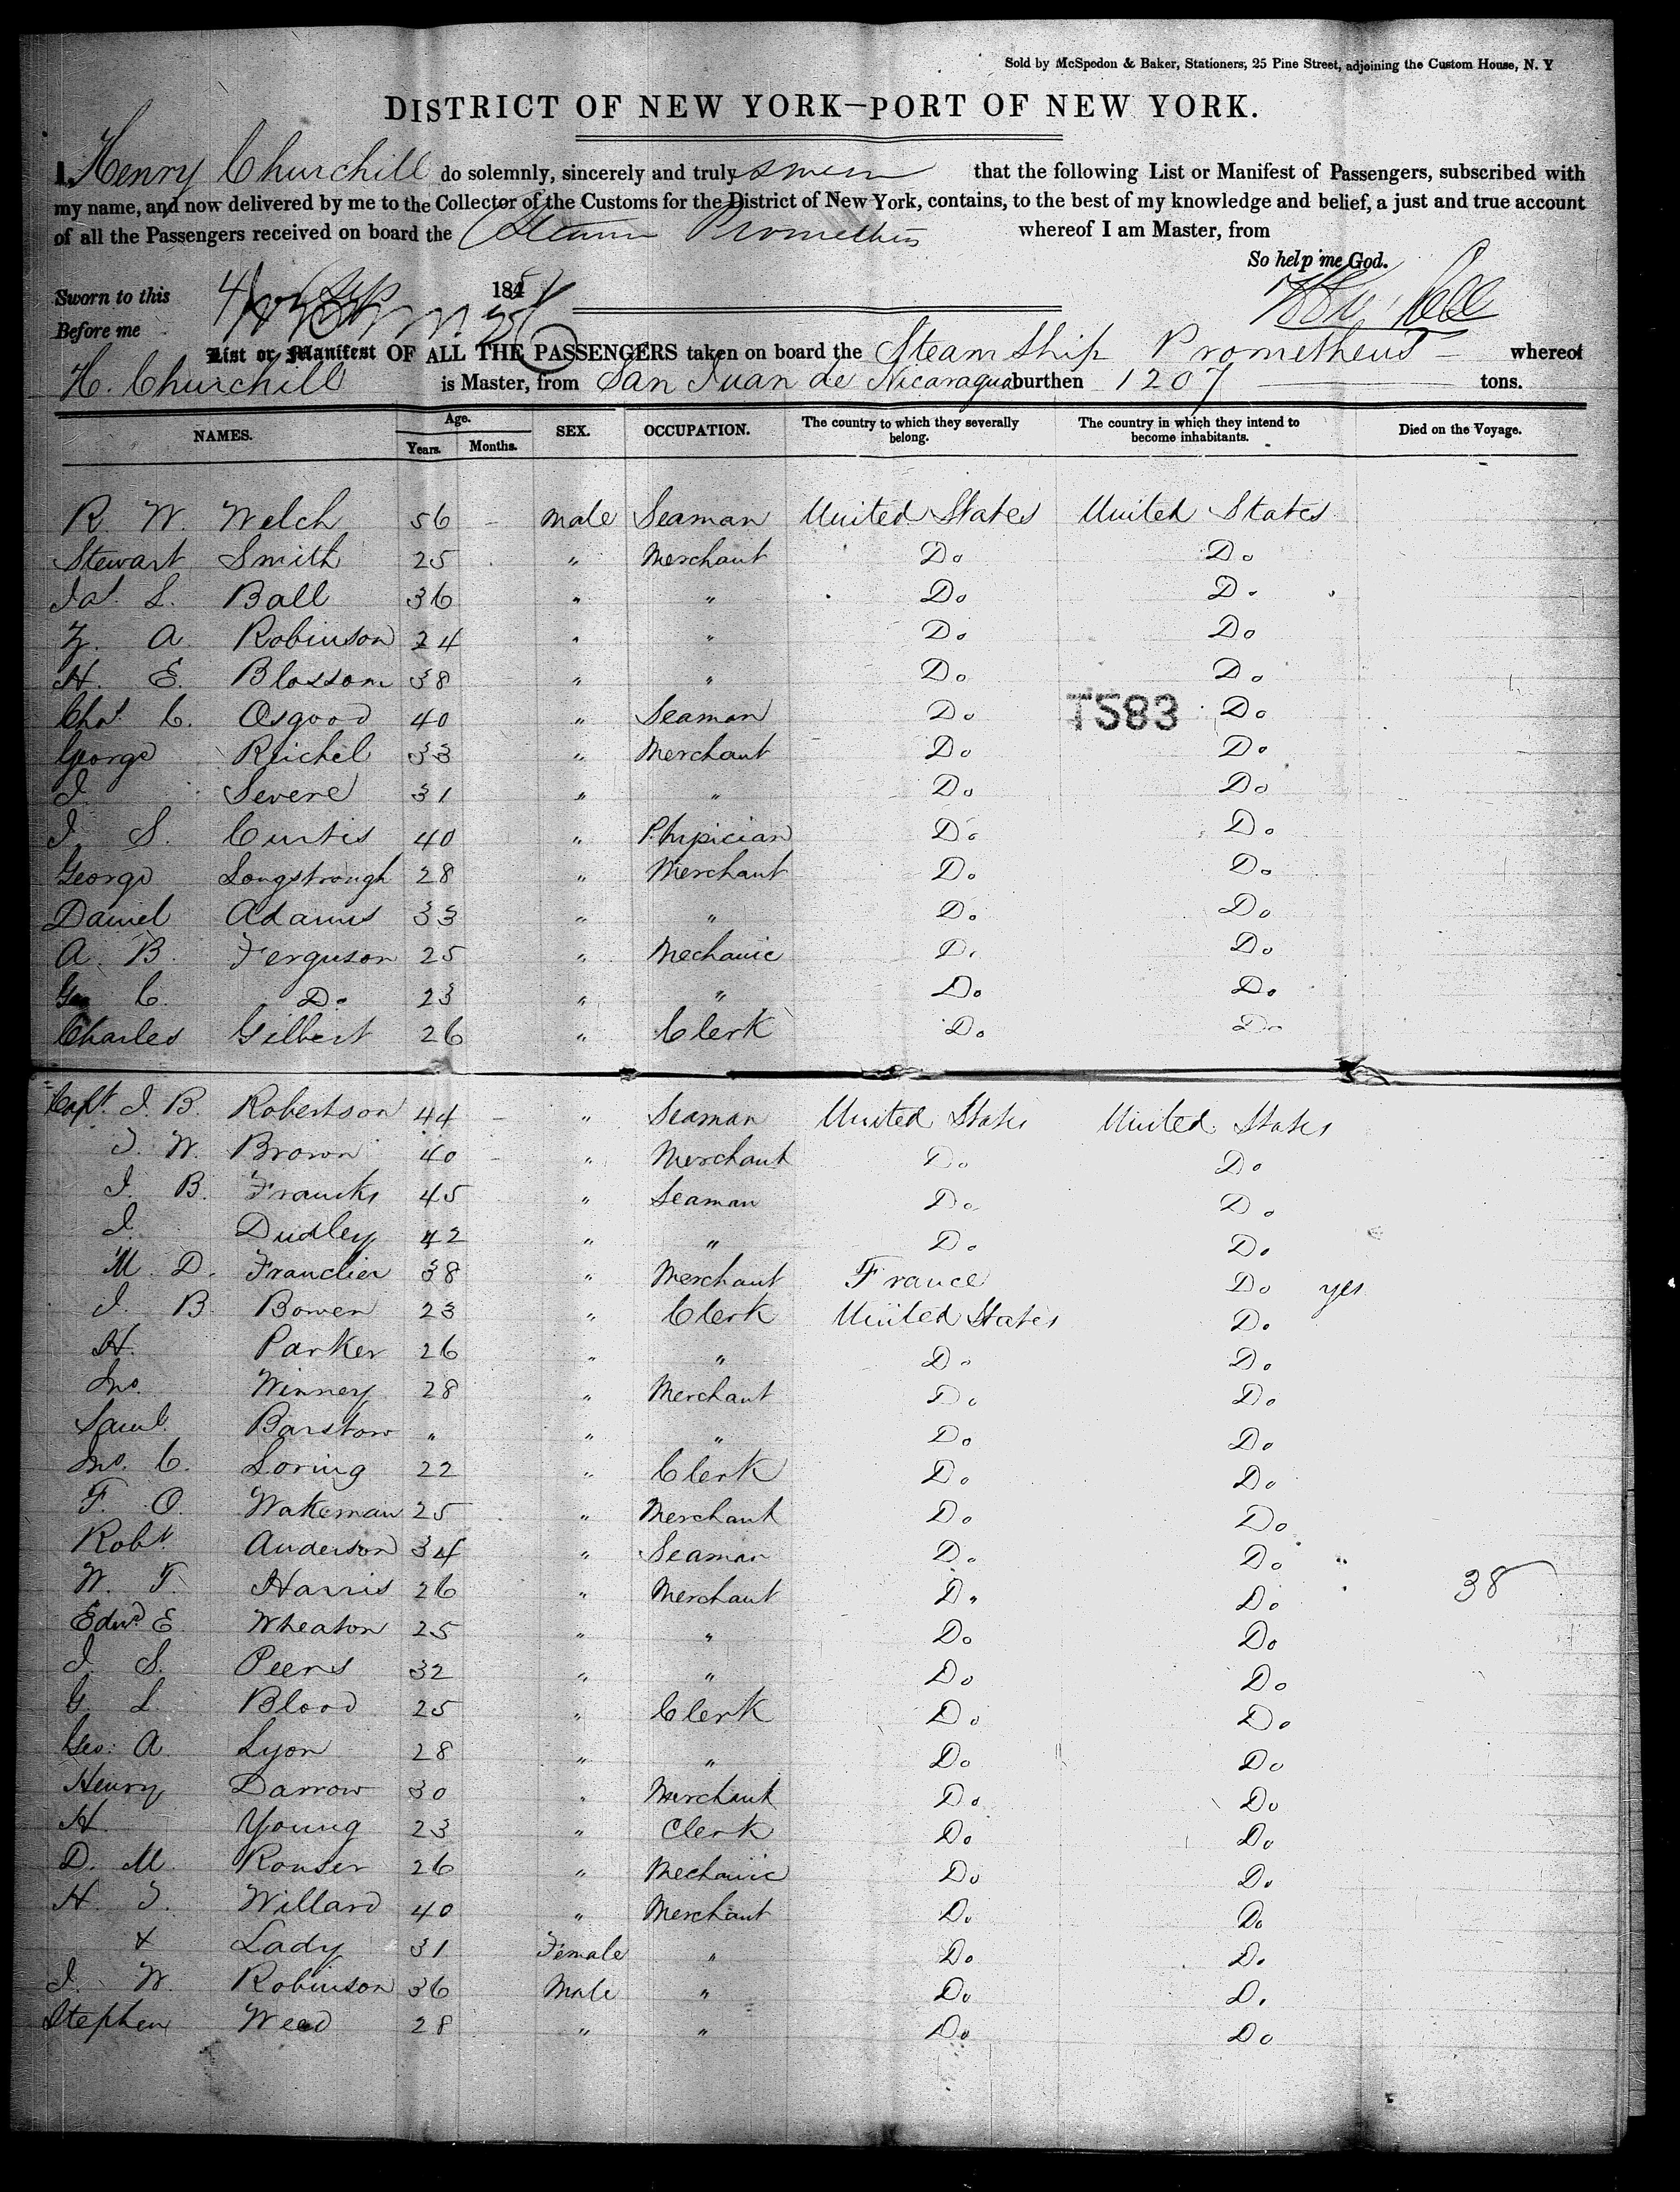 Sold by McSpedon & Baker, Stationers, 25 Pine Street, adjoining the Custom House, N. Y
DISTRICT OF NEW YORK—PORT OF NEW YORK.
I, Henry Churchill do solemnly, sincerely and truly swear that the following List or Manifest of Passengers, subscribed with
my name, and now delivered by me to the Collector of the Customs for the District of New York, contains, to the best of my knowledge and belief, a just and true account
of all the Passengers received on board the Steam Prometheus whereof I am Master, from
So help me God.
Sworn to this 4 Sep 1851
Before me
List or Manifest OF ALL THE PASSENGERS taken on board the Steam Ship Prometheus whereof
H. Churchill is Master, from San Juan de Nicaragua burthen 1207 tons.
NAMES. Age. Years. Months. SEX. OCCUPATION. The country to which they severally belong. The country in which they intend to become inhabitants. Died on the Voyage.
R. W. Welch 56 - male Seaman United States United States
Stewart Smith 25 " Merchant Do Do
Jas. L. Ball 36 " " Do Do
Z. A. Robinson 24 " " Do Do
H. E. Blossom 38 " " Do Do
Chas. C. Osgood 40 " Seaman Do Do
T583
George Reichel 33 " Merchant Do Do
J. Severe 31 " " Do Do
J. S. Curtis 40 " Physician Do Do
George Longstrough 28 " Merchant Do Do
Daniel Adams 33 " " Do Do
A. B. Ferguson 25 " Mechanic Do Do
Geo C. Do 23 " " Do Do
Charles Gilbert 26 " Clerk Do Do
Capt. J. B. Robertson 44 - " Seaman United States United States
J. W. Brown 40 - " Merchant Do Do
J. B. Francks 45 " Seaman Do Do
J. Dudley 42 " " Do Do
M. D. Franclier 38 " Merchant France Do yes
J. B. Bowen 23 " Clerk United States Do
H. Parker 26 " " Do Do
Jno. Winney 28 " Merchant Do Do
Saml. Barstow " " " Do Do
Jno. C. Loring 22 " Clerk Do Do
F. O. Wakeman 25 " Merchant Do Do
Robt. Anderson 34 " Seaman Do Do
W. T. Harris 26 " Merchant Do Do 38
Edwd E. Wheaton 25 " " Do Do
J. S. Peers 32 " " Do Do
G. L. Blood 25 " Clerk Do Do
Geo. A. Lyon 28 " " Do Do
Henry Darrow 30 " Merchant Do Do
H. Young 23 " Clerk Do Do
D. M. Rouser 26 " Mechanic Do Do
H. T. Willard 40 " Merchant Do Do
& Lady 31 Female " Do Do
J. W. Robinson 36 Male " Do Do
Stephen Weed 28 " " Do Do